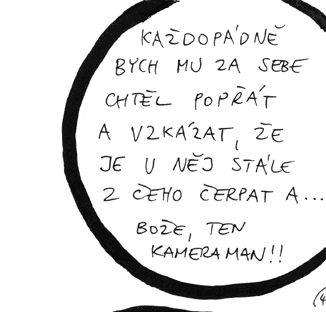 KAŽDOPÁDNĚ
BYCH MU ZA SEBE
CHTĚL POPŘÁT
A VZKÁZAT, ŽE
JE U NĚJ STÁLE
Z ČEHO ČERPAT A...
BOŽE, TEN
KAMERAMAN!!